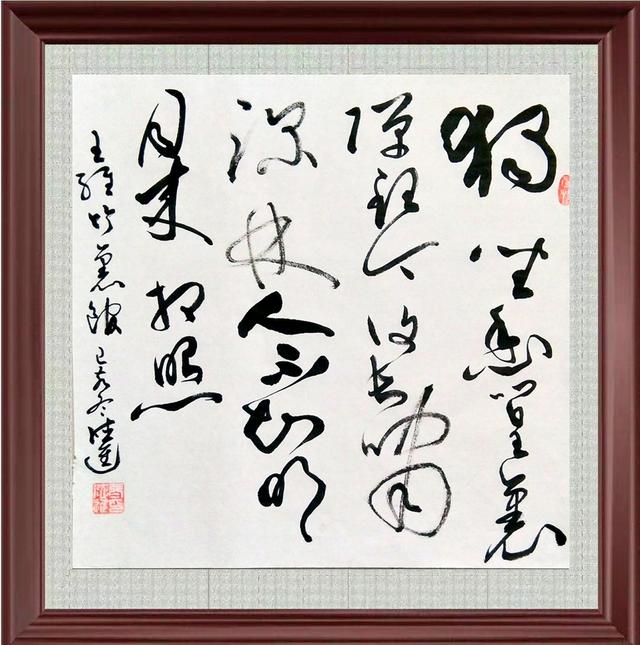 獨坐幽篁裏
彈琴復長嘯
深林人不知明
月来相照
王維竹裏館 己亥冬